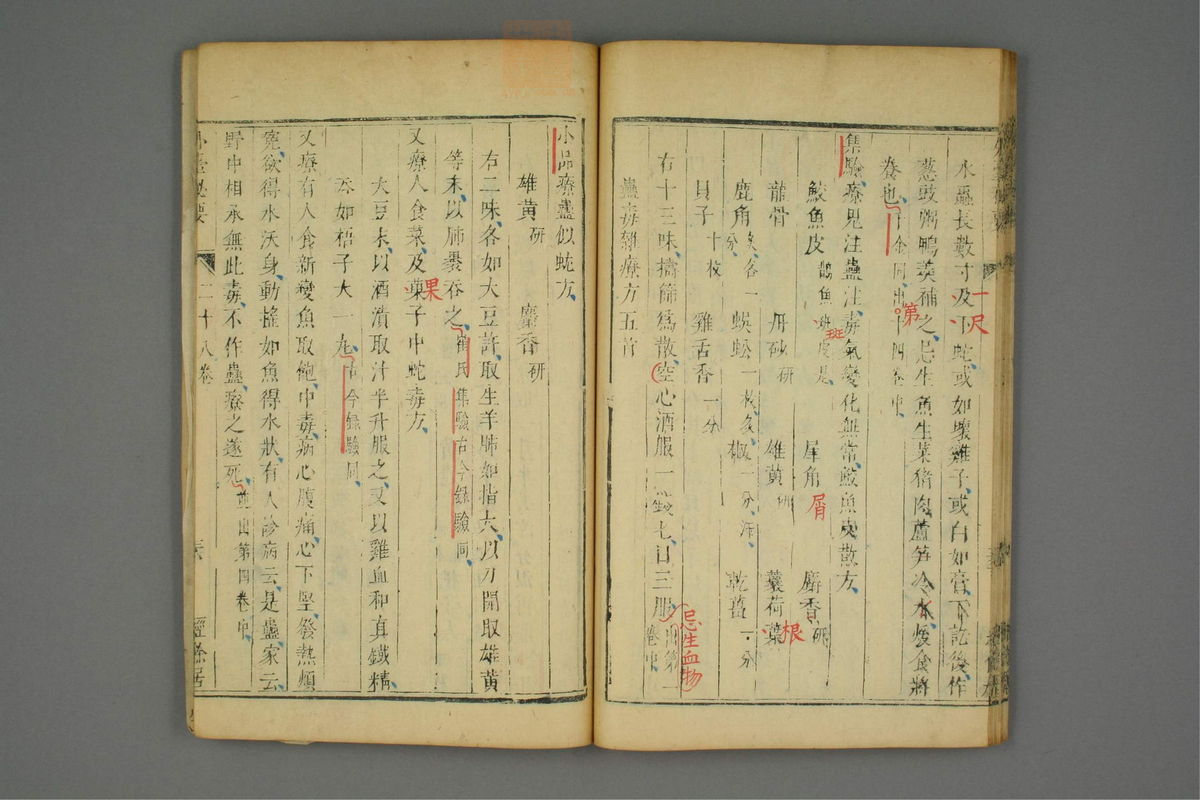 水蠱長數寸及下蛇或如壞雞子或白如膏下訖後作
一尺
葱豉粥鴨羹補之忌生魚生菜猪肉蘆笋冷水煖食將
養也千金同出十四卷中
第
集驗療鬼注蠱注毒氣變化無常鮫魚皮散方
鮫魚皮 鵲魚班皮是 犀角 麝香研
班 屑
龍骨 丹砂研 雄黃研 蘘荷葉
根
鹿角炙各一分 蜈蚣一枚炙 椒一分汗 乾薑一分
貝子十枚 雞舌香一分
右十三味擣篩爲散空心酒服一錢七日三服出第一卷中
忌生血物
蠱毒雜療方五首
小品療蠱似蛇方
雄黃研 麝香研
右二味各如大豆許取生羊肺如指大以刀開取雄黃
等末以肺裹吞之崔氏集驗古今錄驗同
又療人食菜及菓子中蛇毒方
果
大豆末以酒漬取汁半升服之又以雞血和真鐵精
丸如梧子大一丸古今錄驗同
又療有人食新變魚取飽中毒病心腹痛心下堅發熱煩
冤欲得水沃身動搖如魚得水狀有人診病云是蠱家云
野中相承無此毒不作蠱療之遂死並出第四卷中
外臺秘要 二十八卷 經餘居